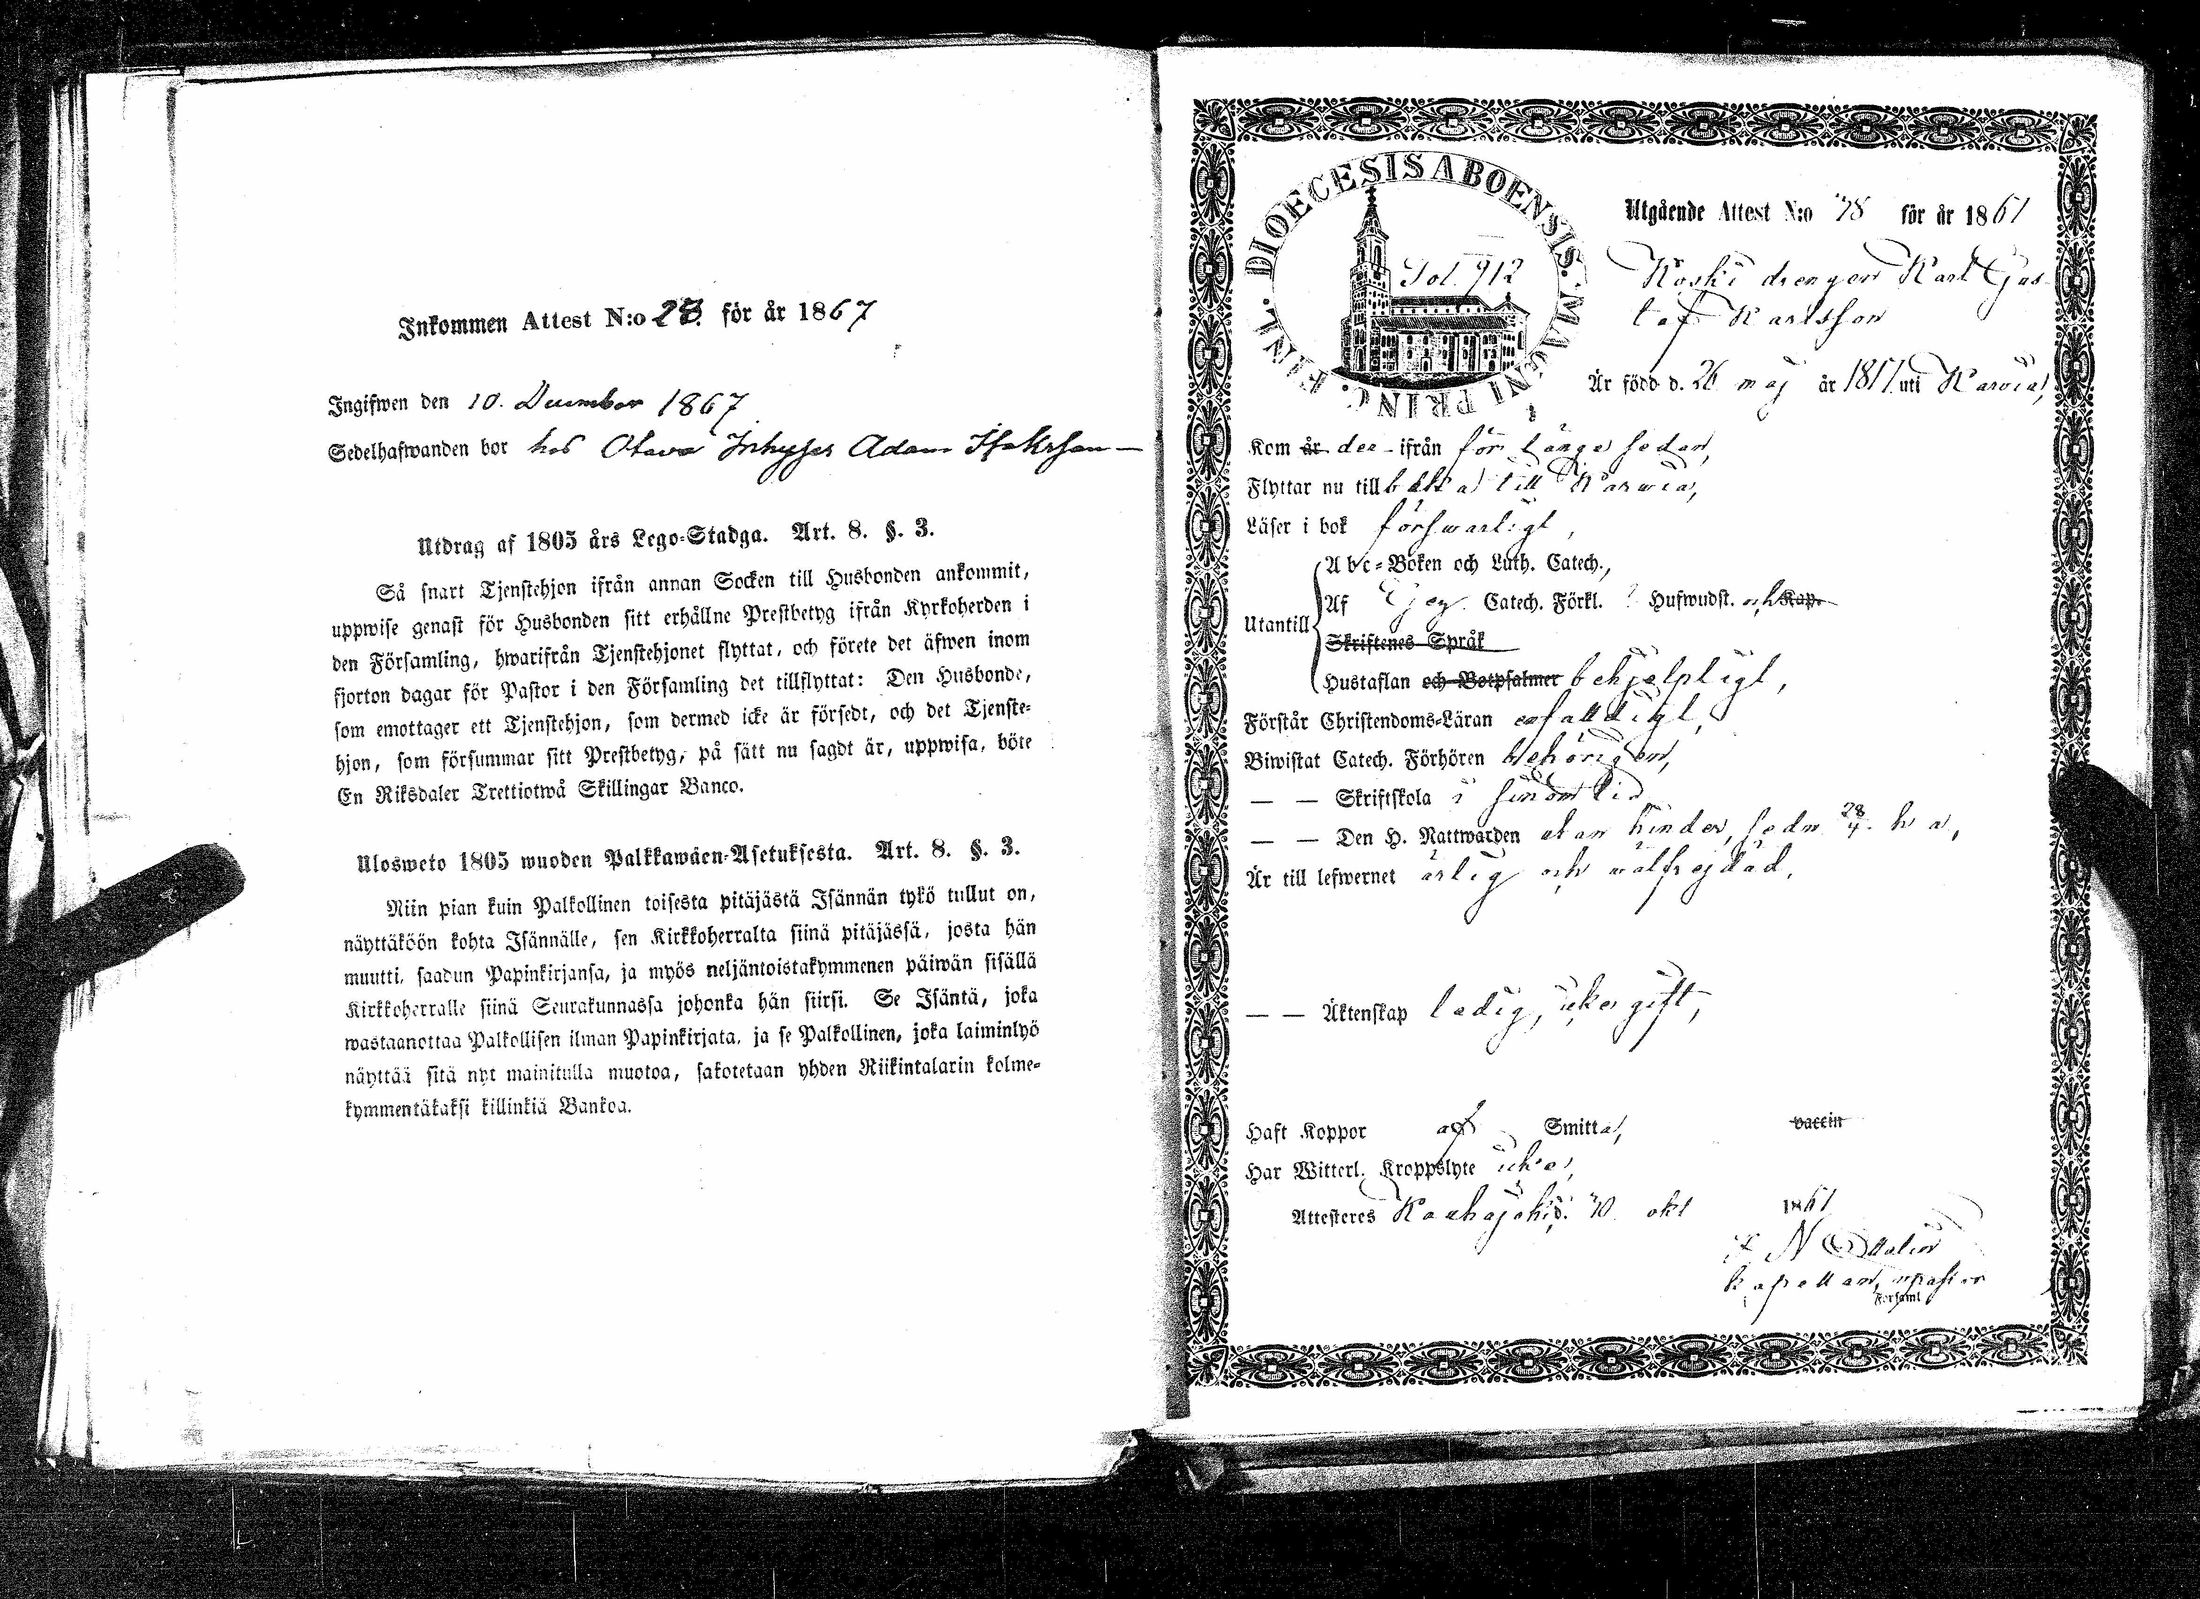 Inkommen Attest N:o 28. för år 1867
Ingifwen den 10. December 1867.
Sedelhafwanden bor hos Otava Inhyses Adam Isakrson —
Utdrag af 1805 års Lego-Stadga. Art. 8. §. 3.
Så snart Tjenstehjon ifrån annan Socken till Husbonden ankommit,
uppwise genast för Husbonden sitt erhållne Prestbetyg ifrån Kyrkoherden i
den Församling, hwarifrån Tjenstehjonet flyttat, och förete det äfwen inom
fjorton dagar för Pastor i den Församling det tillflyttat: Den Husbonde,
som emottager ett Tjenstehjon, som dermed icke är försedt, och det Tjenste-
hjon, som försummar sitt Prestbetyg, på sätt nu sagdt är, uppwisa, böte
En Riksdaler Trettiotwå Skillingar Banco.
Ulosweto 1805 wuoden Palkkawäen-Asetuksesta. Art. 8. §. 3.
Niin pian kuin Palkollinen toisesta pitäjästä Isännän tykö tullut on,
näyttäköön kohta Isännälle, sen Kirkkoherralta siinä pitäjässä, josta hän
muutti, saadun Papinkirjansa, ja myös neljäntoistakymmenen päiwän sisällä
Kirkkoherralle siinä Seurakunnassa johonka hän siirsi. Se Isäntä, joka
wastaanottaa Palkollisen ilman Papinkirjata, ja se Palkollinen, joka laiminlyö
näyttää sitä nyt mainitulla muotoa, sakotetaan yhden Riikintalarin kolme-
kymmentäkaksi killinkiä Bankoa.
DIOECESIS ABOENSIS. MAGNI PRINC. FINL.
Fol. 912
Utgående Attest N:o 78 för år 1861
Koski drengen Karl Gus-
taf Karlsson
Är född d. 26 maj år 1851 uti Karvia,
Kom år der- ifrån för länge sedan,
Flyttar nu tillbaka till Karvia,
Läser i bok försvarligt,
Abc-Boken och Luth. Catech.,
Utantill
Af Catech. Förkl. Hufwudst. och Kap.
Skriftenes Språk
Hustaflan och Botpsalmer behjelpligt,
Förstår Christendoms-Läran enfaldigt,
Biwistat Catech. Förhören behörigen,
— — Skriftskola i sinom tid
— — Den H. Nattwarden utan hinder, sedn 28/4 h a,
Är till lefwernet ärlig och välfrejdad,
— — Äktenskap ledig, icke gift,
Haft Koppor af Smitta, vaccin
Har Witterl. Kroppslyte icke,
Attesteres Kauhajoki d. 10 okt 1861
kapellan, vpastor
Forsaml